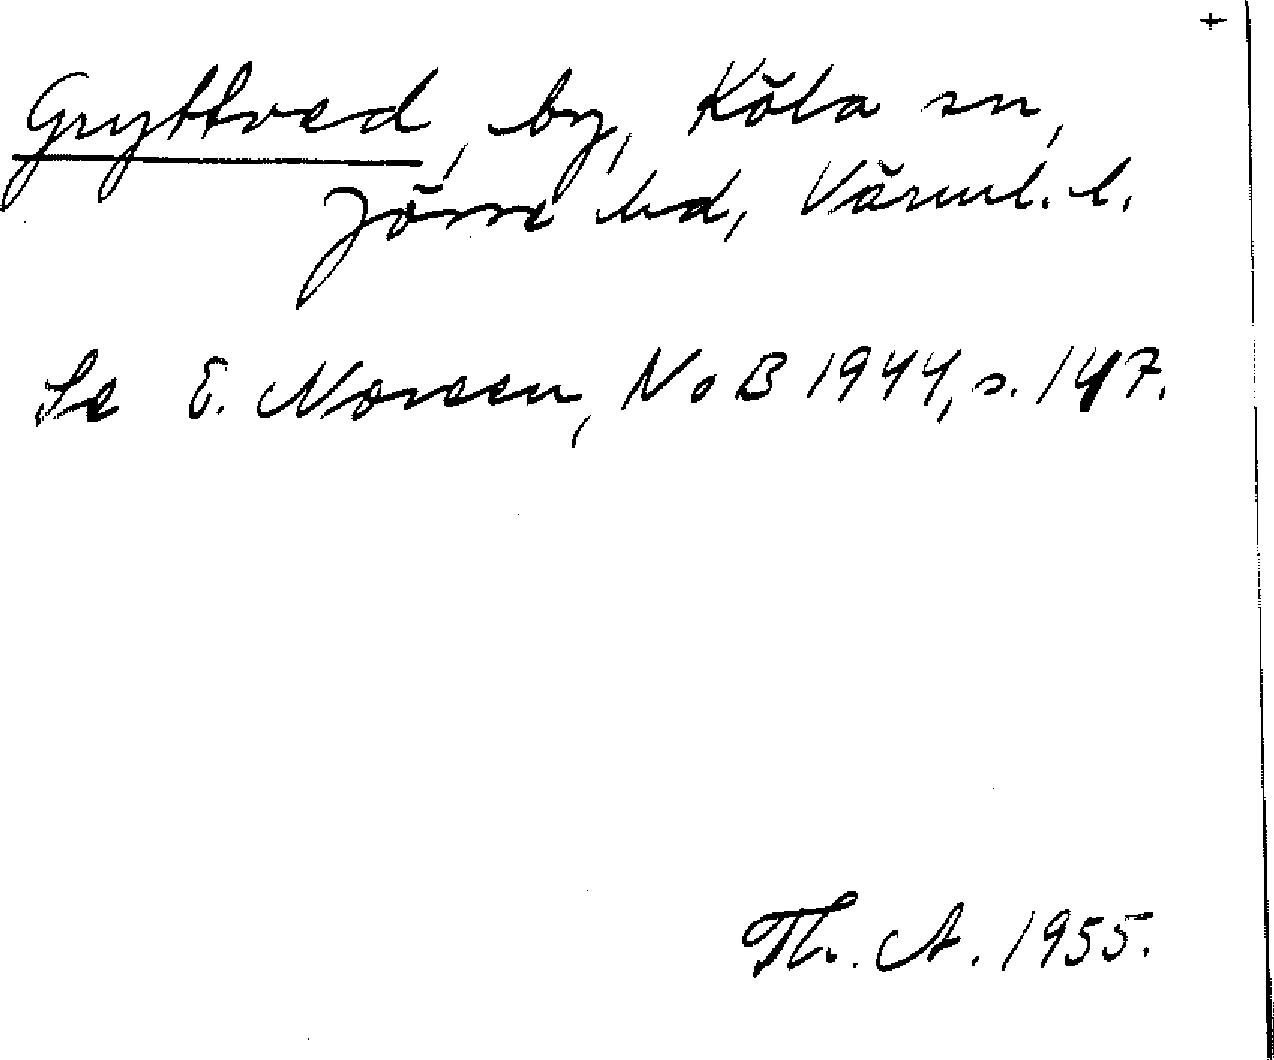 +
Gryttved, by, Köla sn,
Jösse hd, Värml. l.
Se E. Noreen, NoB 1944, s. 147.
Th. A. 1955.